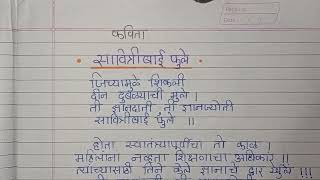 कविता
सावित्रीबाई फुले
जिच्यामुळे शिकली
दीन दुबळ्याची मुले ।
ती ज्ञानदाती ती ज्ञानज्योती
सावित्रीबाई फुले ।।
होता स्वातंत्र्यापूर्वीचा तो काळ ।
महिलांना नव्हता शिक्षणाचा अधिकार ।।
त्याच्यासाठी तिने केले ज्ञानाचे द्वार खुले